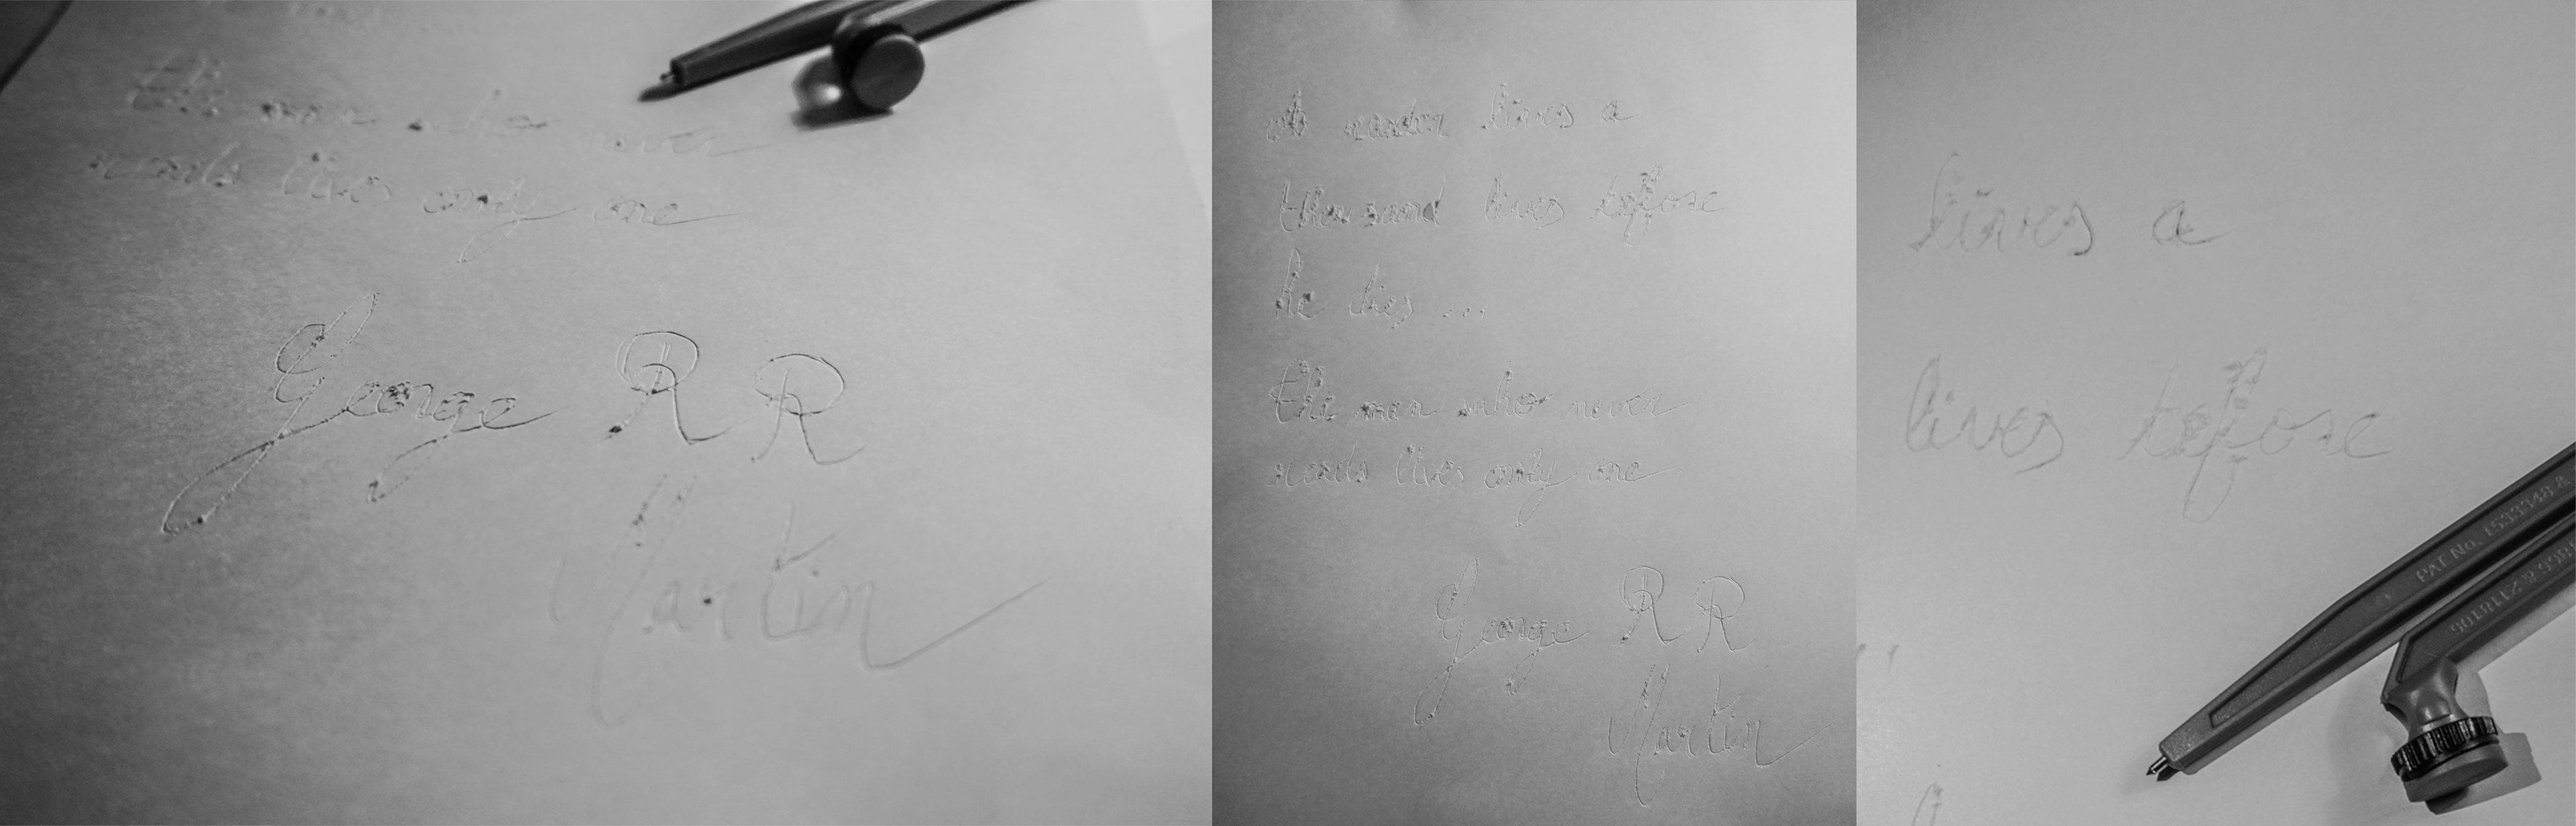 the man who never
reads lives only one
George R R
Martin
A reader lives a
thousand lives before
he dies ...
the man who never
reads lives only one
George R R
Martin
lives a
lives before
PAT No.